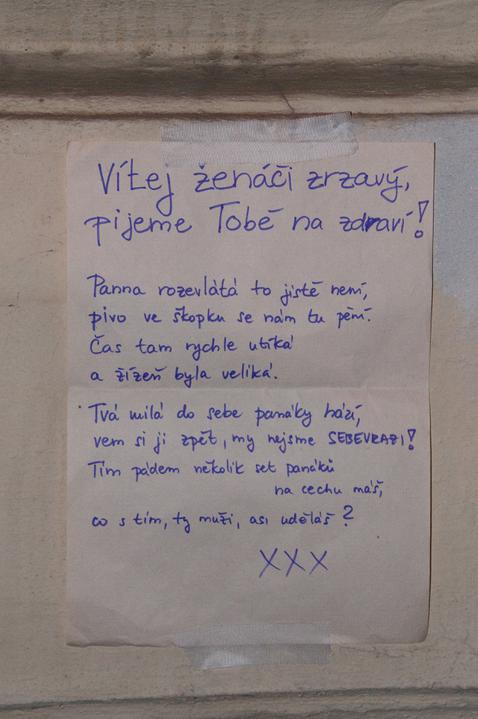 Vítej ženáči zrzavý,
pijeme Tobě na zdraví!
Panna rozevlátá to jistě není,
pivo ve škopku se nám tu pění.
Čas tam rychle utíká
a žízeň byla veliká.
Tvá milá do sebe panáky hází,
vem si ji zpět, my nejsme SEBEVRAZI!
Tím pádem několik set panáků
na cechu máš,
co s tím, ty muži, asi uděláš?
XXX